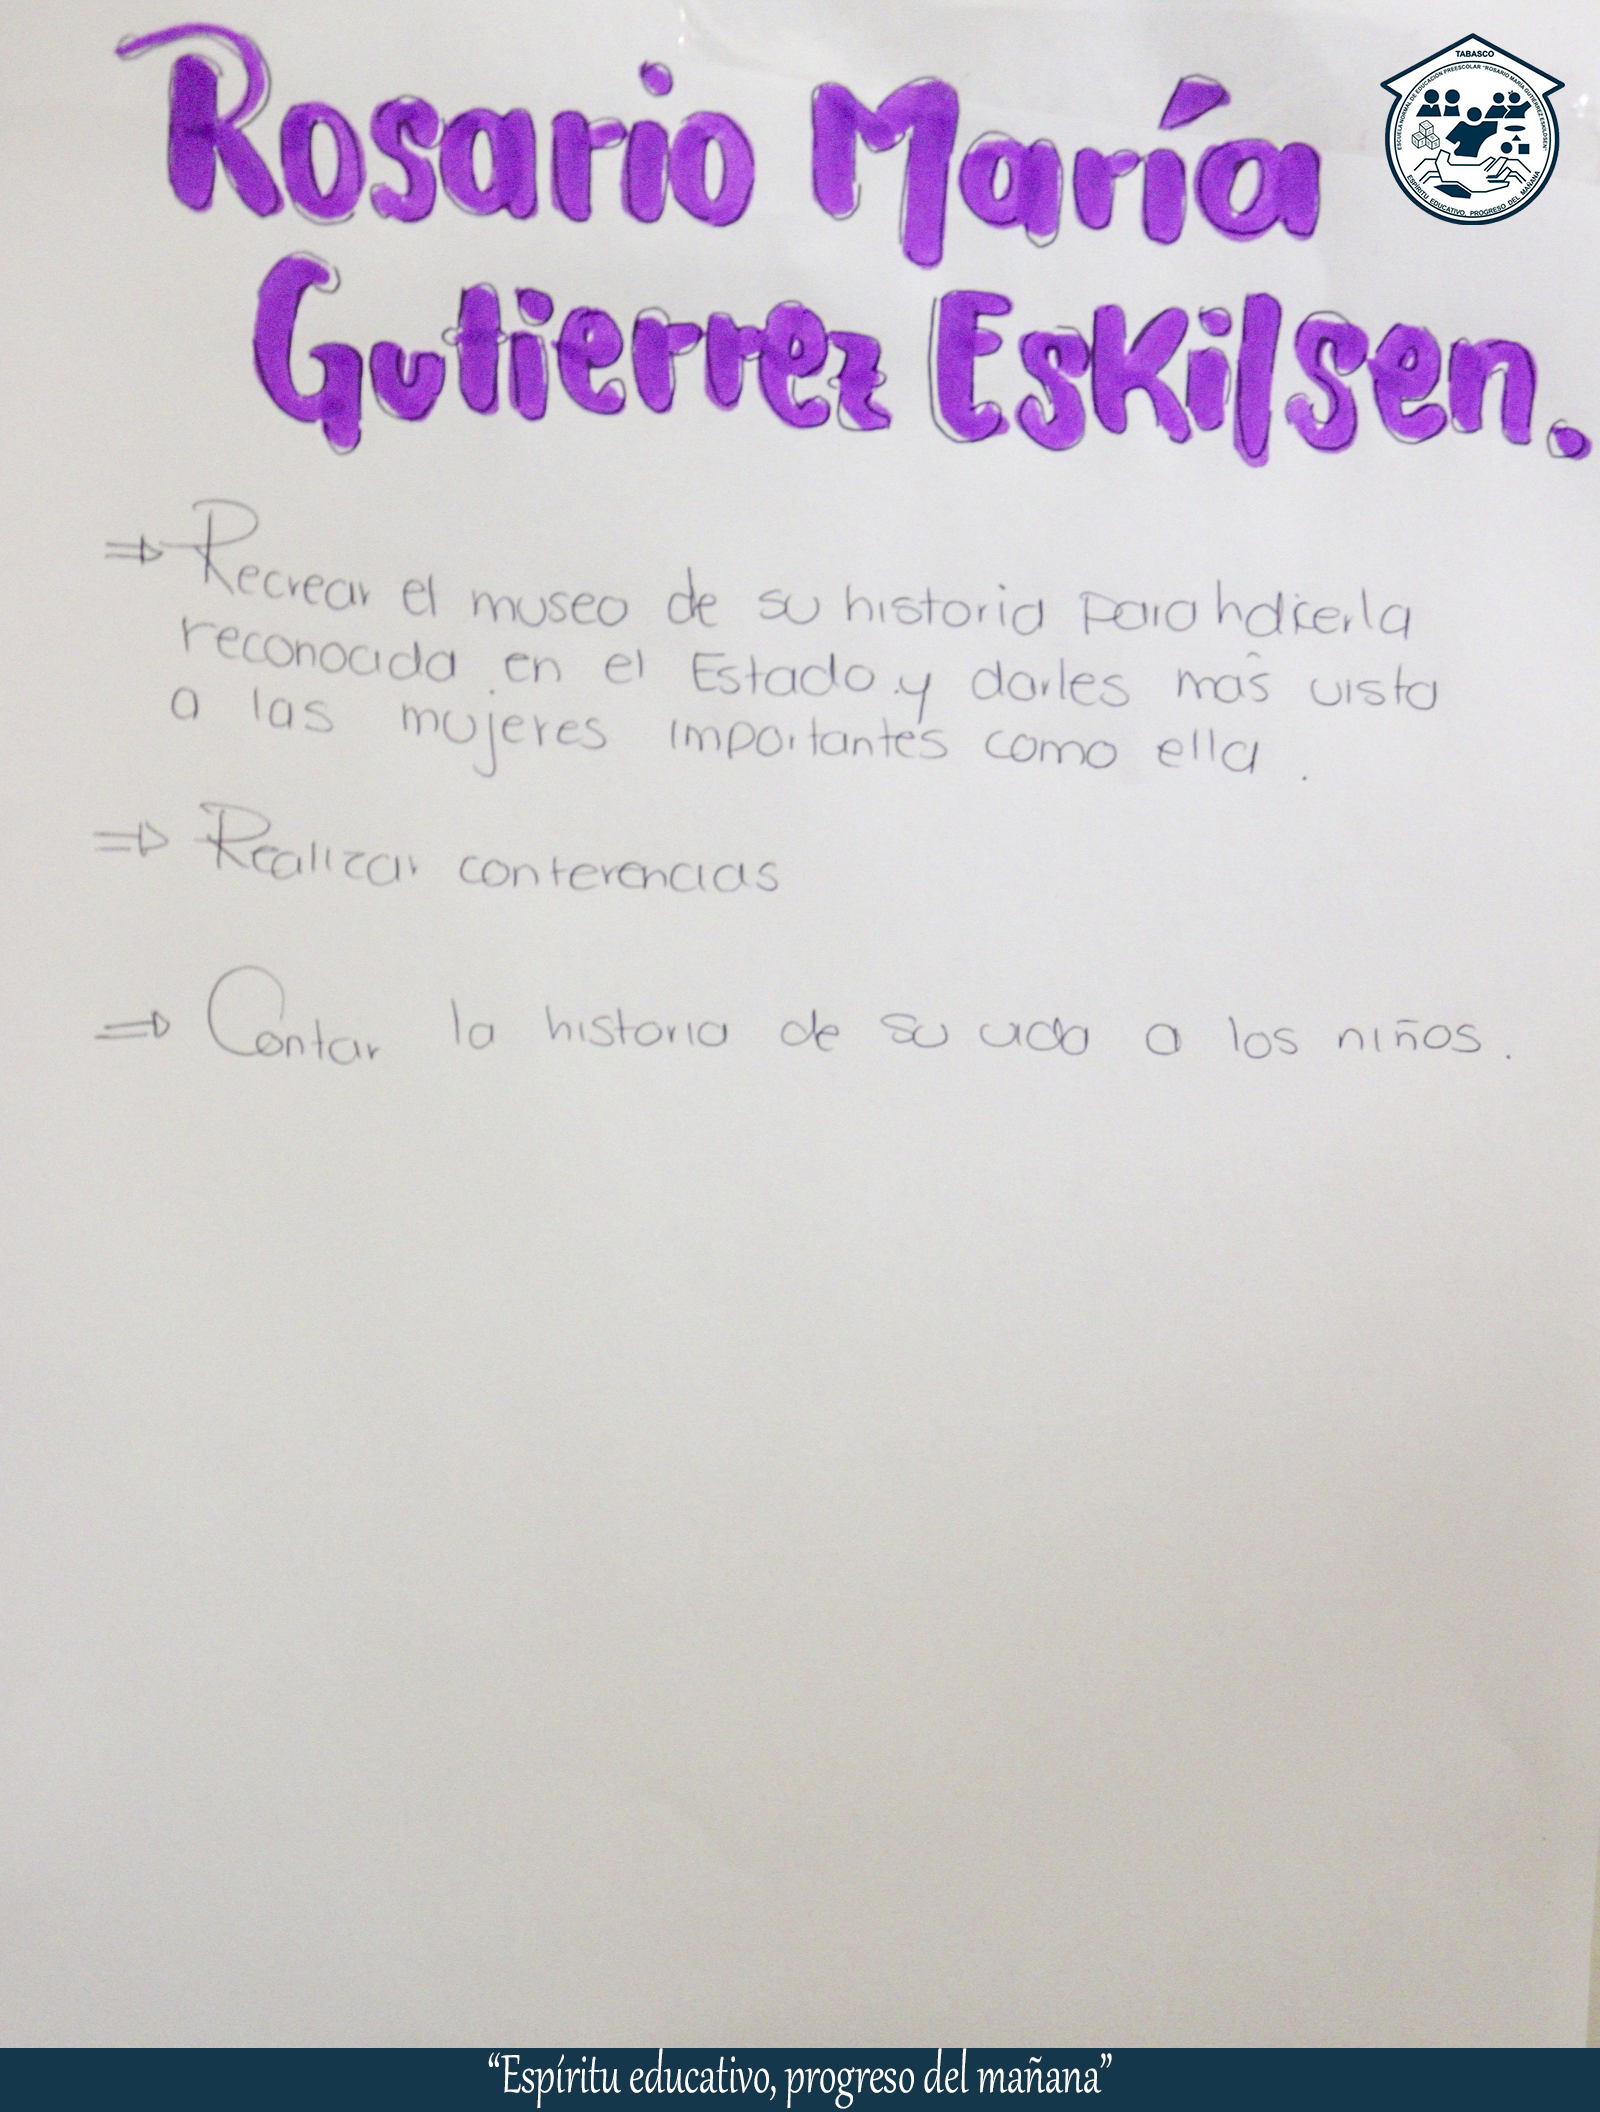 Rosario María
Gutierrez Eskilsen.
TABASCO
ESCUELA NORMAL DE EDUCACIÓN PREESCOLAR "ROSARIO MARÍA GUTIÉRREZ ESKILDSEN"
ESPÍRITU EDUCATIVO, PROGRESO DEL MAÑANA
⇒ Recrear el museo de su historia para hacerla
reconocida en el Estado y darles mas vista
a las mujeres importantes como ella.
⇒ Realizar conferencias
⇒ Contar la historia de su vida a los niños.
“Espíritu educativo, progreso del mañana”